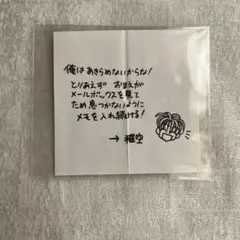 俺はあきらめないからな!
とりあえず おまえが
メールボックスを見て
ため息つかないように
メモを入れ続ける!
→ 空